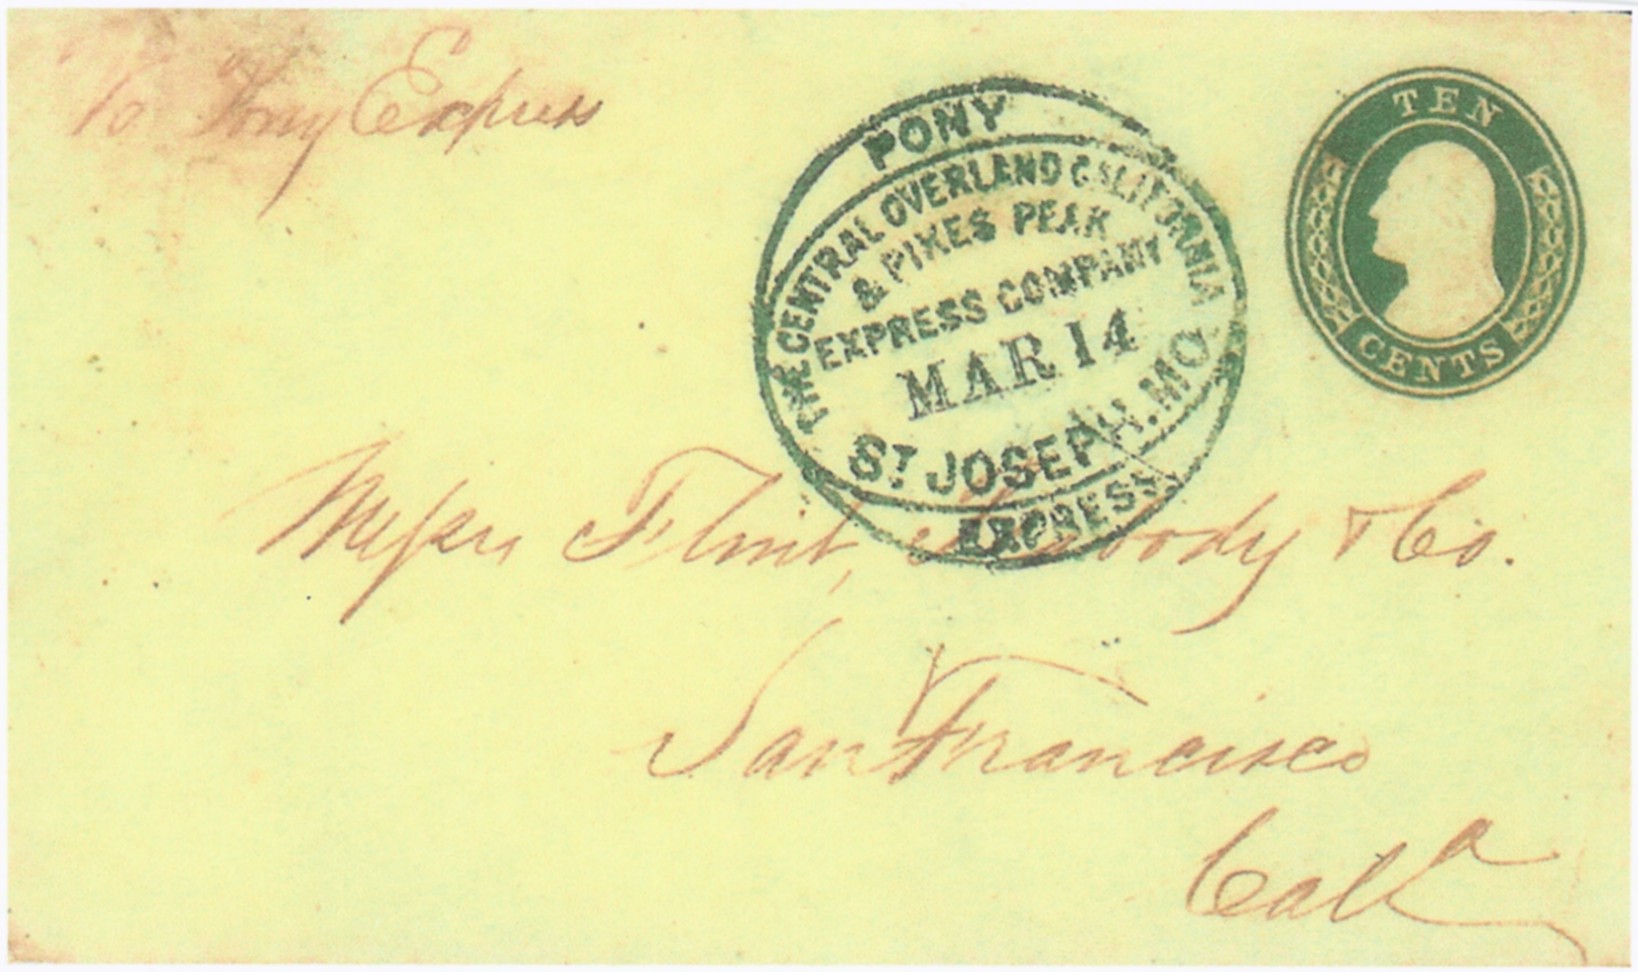 Pr Pony Express
PONY
THE CENTRAL OVERLAND CALIFORNIA
& PIKES PEAK
EXPRESS COMPANY
MAR 14
ST JOSEPH. MO.
EXPRESS
TEN
CENTS
Messrs Flint, Peabody & Co.
San Francisco
Cala